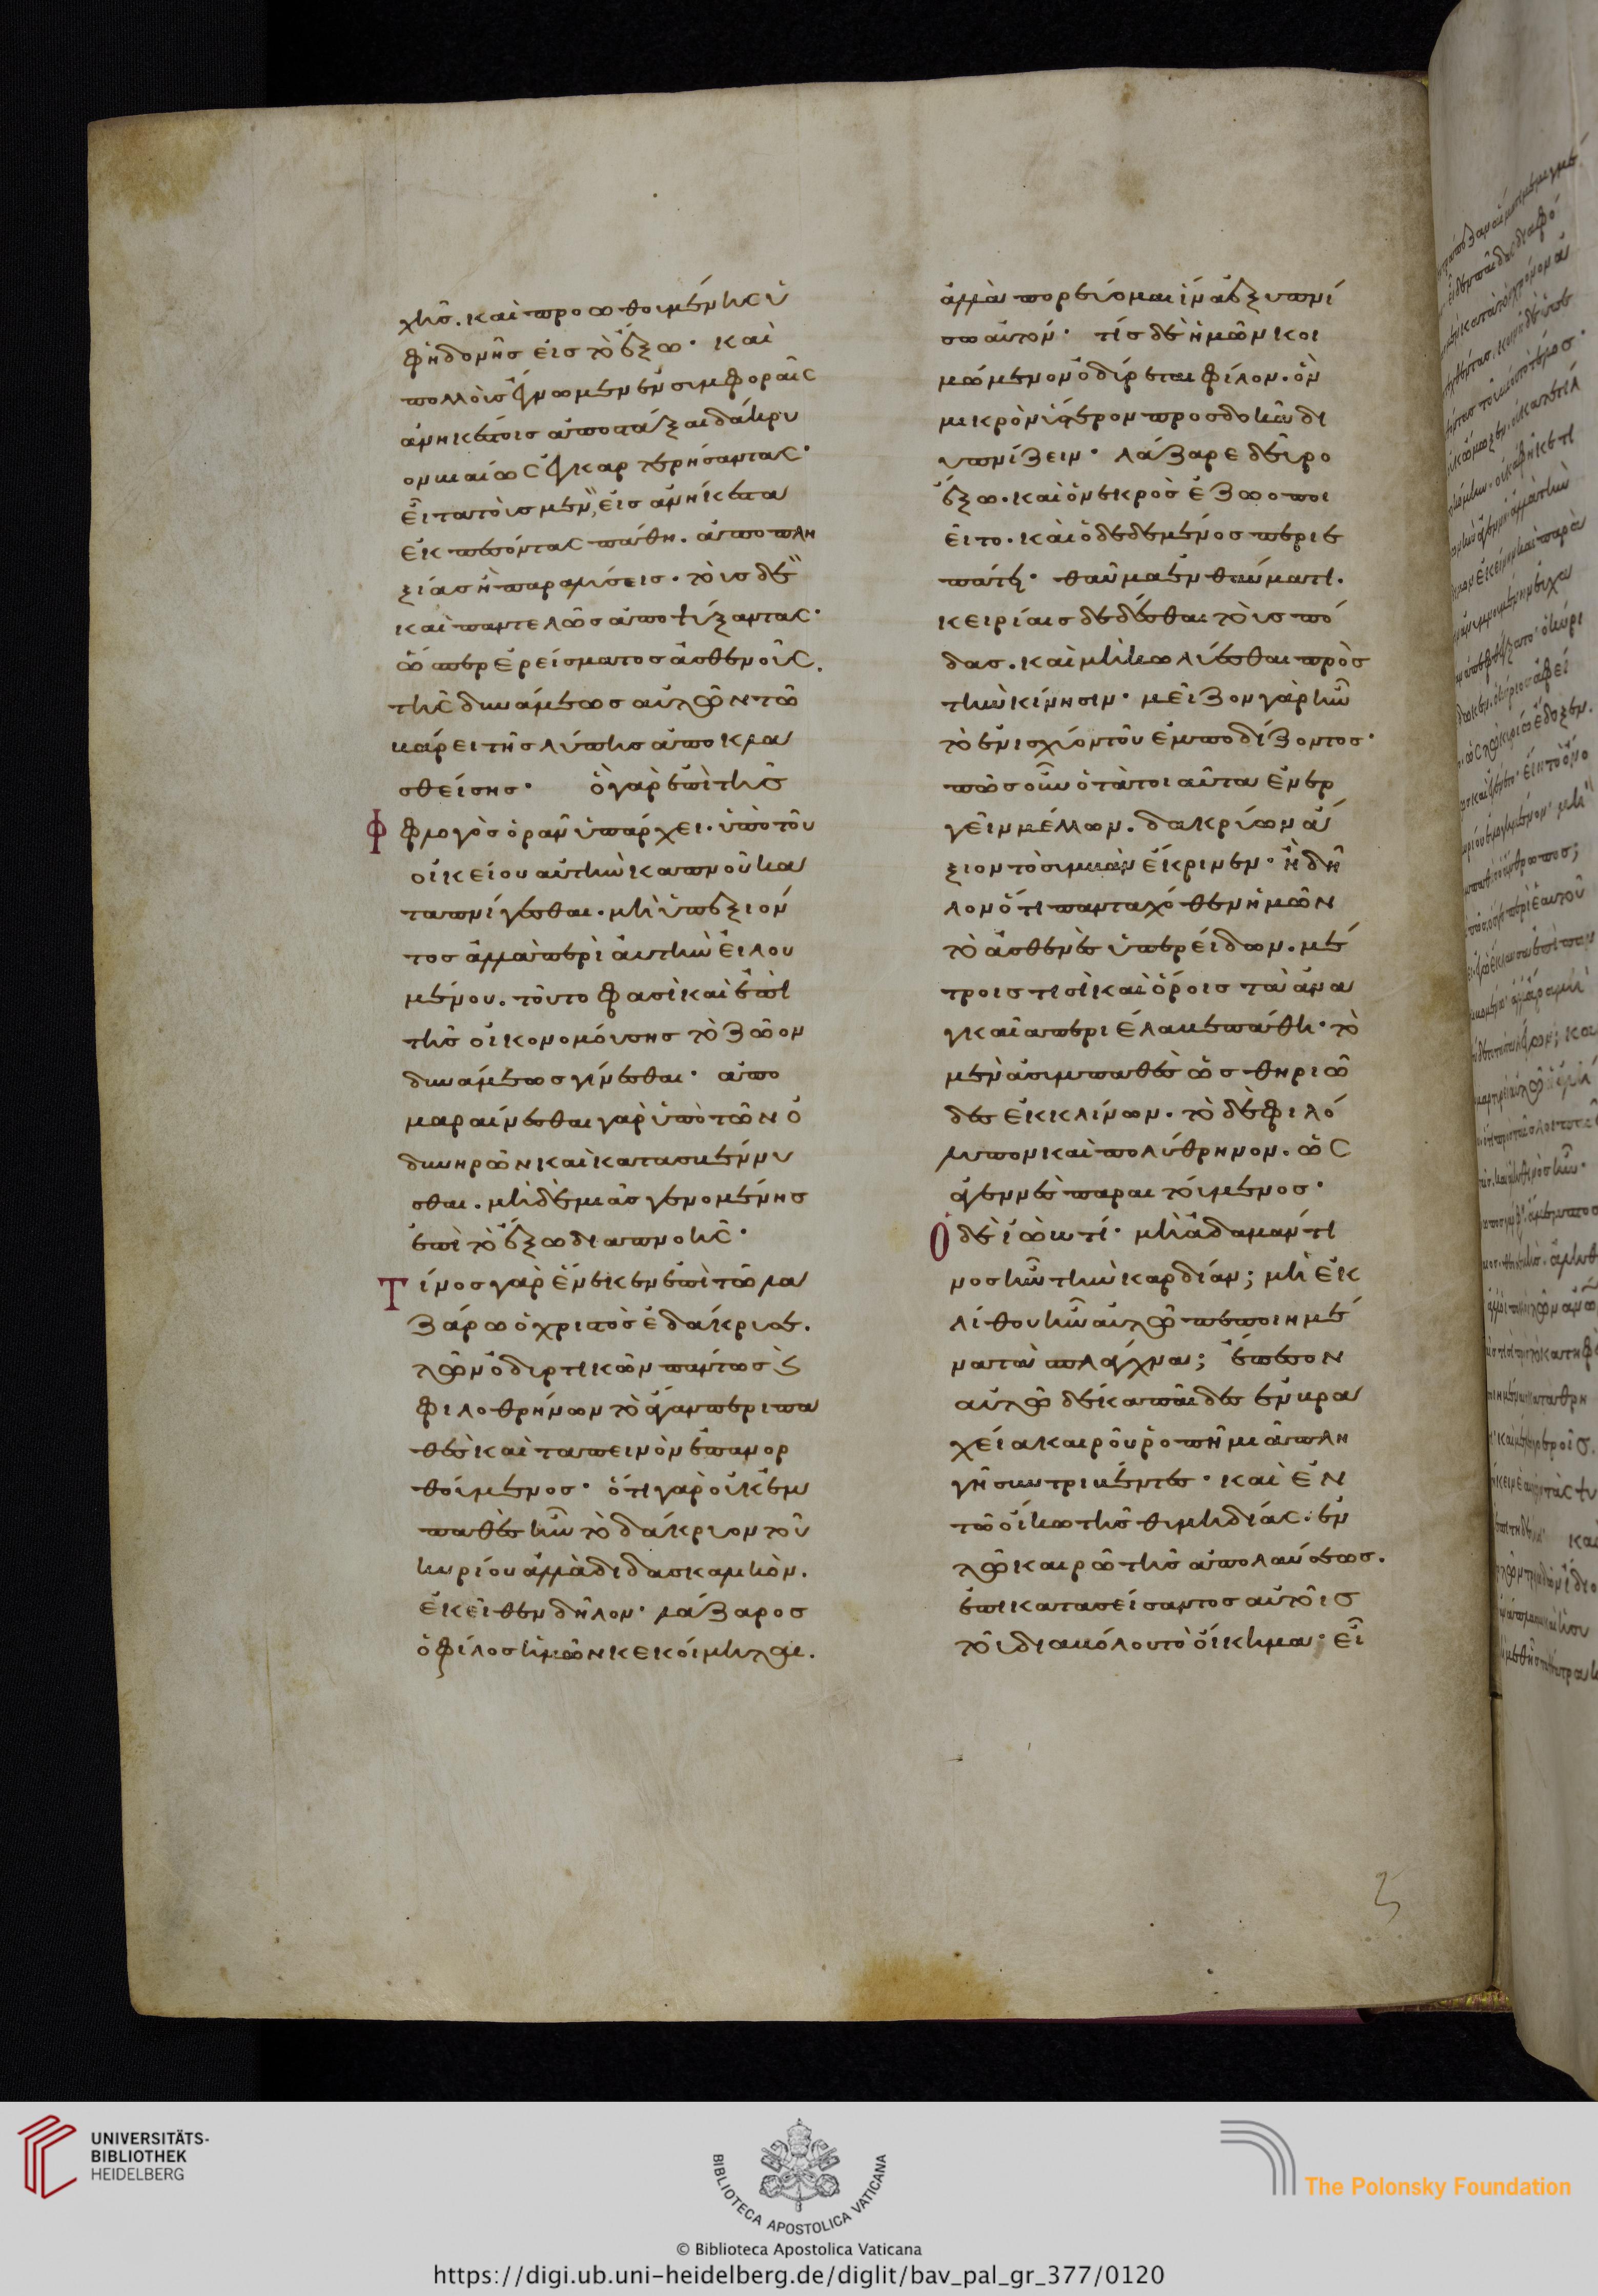 χῆς. καὶ προωθουμένης ὑ
φηδονῆς εἰς τὸ ἔξω· καὶ
πολλοὺς ἔγνωμεν ἐν συμφοραῖς
ἀνηκέστοις ἀποστάξαι δάκρυ
ον βιαίως
εἶτα τοὺς μὲν, εἰς ἀνήκεστα
ἐκπεσόντας πάθη. ἀποπλη
ξίας ἢ παραλύσεις. τοὺς δὲ
καὶ παντελῶς ἀποψύξαντας·
ὥσπερ ἐρείσματος ἀσθενοῦς.
τῆς δυνάμεως αὐτῶν τῶ
βάρει τῆς λύπης ὑποκλα
σθείσης· ὃ γὰρ ἐπὶ τῆς
φλογὸς ὁρᾶν ὑπάρχει. ὑπὸ τοῦ
οἰκείου αὐτὴν καπνοῦ κα
ταπνίγεσθαι. μὴ ὑπεξιόν
τος ἀλλὰ περὶ αὐτὴν εἰλου
μένου. τοῦτο φασὶ καὶ ἐπὶ
τῆς οἰκονομούσης τὸ ζῶον
δυνάμεως γίνεσθαι· ἀπο
μαραίνεσθαι γὰρ ὑπὸ τῶν ὀ
δυνηρῶν καὶ κατασβέννυ
σθαι. μὴ δὲ μιᾶς γενομένης
ἐπὶ τὸ ἔξω διαπνοῆς·
Τίνος γὰρ ἕνεκεν ἐπὶ τῶ λα
ζάρω ὁ χριστὸς ἐδάκρυσε.
τῶν ὀδυρτικῶν πάντως ς
φιλοθρήνων τὸ ἄγαν περιπα
θὲς καὶ ταπεινὸν ἐπανορ
θούμενος· ὅτι γὰρ οὐκ ἐμ
παθὲς ἦν τὸ δάκρυον τοῦ
κυρίου ἀλλὰ διδασκαλικὸν.
ἐκεῖθεν δῆλον· λάζαρος
ὁ φίλος ἡμῶν κεκοίμηται.
ἀλλὰ πορεύομαι ἵνα ἐξυπνί
σω αὐτόν· τίς δὲ ἡμῶν κοι
μώμενον ὀδύρεται φίλον. ὃν
μικρὸν ὕστερον προσδοκῶ δι
υπνίζειν· λάζαρε δεῦρο
ἔξω. καὶ ὁ νεκρὸς ἐζωοποι
εῖτο. καὶ ὁ δεδεμένος περιε
πάτει· θαῦμα ἐν θαύματι.
κειρίαις δεδέσθαι τοὺς πό
δας. καὶ μὴ κωλύεσθαι πρὸς
τὴν κίνησιν· μεῖζον γὰρ ἦν
τὸ ἐνισχύον τοῦ ἐμποδίζοντος·
πῶς οὖν ὁ τὰ τοιαῦτα ἐνερ
γεῖν μέλλων. δακρύων ἄ
ξιον τὸ συμβὰν ἔκρινεν· ἢ δῆ
λον ὅτι πανταχόθεν ἡμῶν
τὸ ἀσθενὲς ὑπερείδων. μέ
τροις τισὶ καὶ ὅροις τὰ ἀνα
γκαῖα περιέλαβε πάθη· τὸ
μὲν ἀσυμπαθὲς ὡς θηριῶ
δες ἐκκλίνων. τὸ δὲ φιλό
λυπον καὶ πολύθρηνον. ὡς
ἀγεννὲς παραιτούμενος·
Ὁ δὲ ἰὼβ τί· μὴ ἀδαμάντι
νος ἦν τὴν καρδίαν; μὴ ἐκ
λίθου ἦν αὐτῶ πεποιημέ
να τὰ σπλάγχνα; ἔπεσον
αὐτῶ δέκα παῖδες ἐν βρα
χεία καιροῦ ῥοπῆ μιᾶ πλη
γῆ συντριβέντες· καὶ ἐν
τῶ οἴκω τῆς θυμηδίας. ἐν
τῶ καιρῶ τῆς ἀπολαύσεως.
ἐπικατασείσαντος αὐτοῖς
τοῦ διαβόλου τὸ οἴκημα· εἶ
UNIVERSITÄTS-
BIBLIOTHEK
HEIDELBERG
BIBLIOTECA APOSTOLICA VATICANA
The Polonsky Foundation
© Biblioteca Apostolica Vaticana
https://digi.ub.uni-heidelberg.de/diglit/bav_pal_gr_377/0120